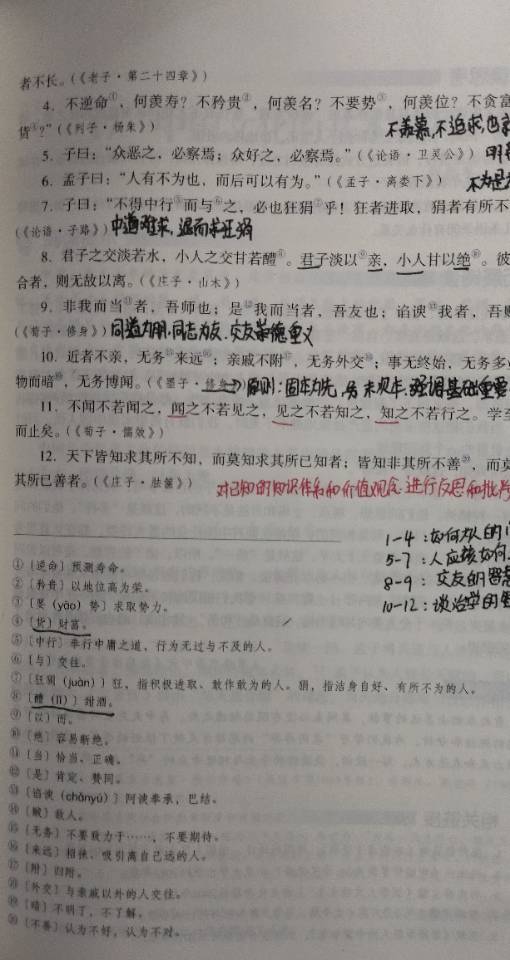 者不长。(《老子·第二十四章》)
4. 不逆命①, 何羡寿? 不矜贵②, 何羡名? 不要势③, 何羡位? 不贪富
货④?”(《列子·杨朱》)
不羡慕,不追求,也
5. 子曰: “众恶之, 必察焉; 众好之, 必察焉。”(《论语·卫灵公》)
6. 孟子曰: “人有不为也, 而后可以有为。”(《孟子·离娄下》)
7. 子曰: “不得中行⑤而与⑥之, 必也狂狷⑦乎! 狂者进取, 狷者有所不
(《论语·子路》) 中道难求,退而求狂狷
8. 君子之交淡若水, 小人之交甘若醴⑧。君子淡以⑨亲, 小人甘以绝⑩。彼
合者, 则无故以离。(《庄子·山木》)
9. 非我而当⑪者, 吾师也; 是⑫我而当者, 吾友也; 谄谀⑬我者, 吾
(《荀子·修身》) 同道为朋,同志为友,交友崇德重义
10. 近者不亲, 无务⑮来远⑯; 亲戚不附⑰, 无务外交⑱; 事无终始, 无务多
物而暗⑲, 无务博闻。(《墨子·修身》) 原则:固本为先,务末次之,强调基础重要
11. 不闻不若闻之, 闻之不若见之, 见之不若知之, 知之不若行之。学至
而止矣。(《荀子·儒效》)
12. 天下皆知求其所不知, 而莫知求其所已知者; 皆知非其所不善⑳, 而
其所已善者。(《庄子·胠箧》)
对已知的知识体系和价值观念进行反思和批判
1-4:如何做人的
5-7:人应该如何
8-9:交友的智慧
10-12:谈治学的
①〔逆命〕预测寿命。
②〔矜贵〕以地位高为荣。
③〔要(yāo)势〕求取势力。
④〔货〕财富。
⑤〔中行〕奉行中庸之道, 行为无过与不及的人。
⑥〔与〕交往。
⑦〔狂狷(juàn)〕狂, 指积极进取、敢作敢为的人。狷, 指洁身自好、有所不为的人。
⑧〔醴(lǐ)〕甜酒。
⑨〔以〕而。
⑩〔绝〕容易断绝。
⑪〔当〕恰当、正确。
⑫〔是〕肯定、赞同。
⑬〔谄谀(chǎnyú)〕阿谀奉承, 巴结。
⑭〔贼〕敌人。
⑮〔无务〕不要致力于……, 不要期待。
⑯〔来远〕招徕、吸引离自己远的人。
⑰〔附〕归附。
⑱〔外交〕与亲戚以外的人交往。
⑲〔暗〕不明了, 不了解。
⑳〔不善〕认为不好, 认为不对。